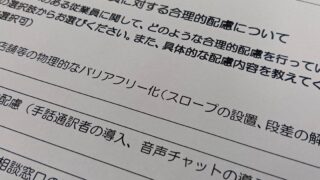 に対する合理的配慮について
ある従業員に関して、どのような合理的配慮を行ってい
の選択肢からお選びください。また、具体的な配慮内容を教えてく
選択可）
店舗等の物理的なバリアフリー化（スロープの設置、段差の解
配慮（手話通訳者の導入、音声チャットの導
相談窓口の